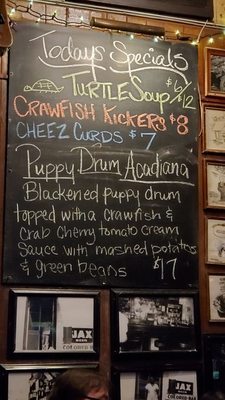 Todays Specials
Turtle Soup $6/$12
CRAWFISH KICKERS $8
CHEEZ CURDS $7
Puppy Drum Acadiana
Blackened puppy drum
topped with a crawfish &
crab cherry tomato cream
Sauce with mashed potatoes
& green beans $17
JAX
JAX
JAX
JAX